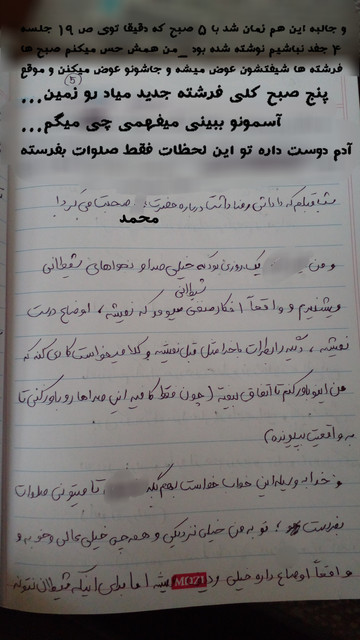 و جالبه این هم زمان شد با ۵ صبح که دقیقا توی ص ۱۹ جلسه
۴ جغد نباشیم نوشته شده بود _ من همش حس میکنم صبح ها
فرشته ها شیفتشون عوض میشه و جاشونو عوض میکنن و موقع
۵
پنج صبح کلی فرشته جدید میاد رو زمین...
آسمونو ببینی میفهمی چی میگم...
آدم دوست داره تو این لحظات فقط صلوات بفرسته
شب قبلم که داداش رضا داشت درباره حضرت صحبت می کرد!
محمد
و من یک دوری بود که خیلی صدا و نجواهای شیطانی
شیطانی
میشنیدم و واقعاً افکار منفی میومد که نمیشه، اوضاع درست
نمیشه، دیگه رابطه ات با خدا مثل قبل نمیشه و کلا میخواست کاری کنه که
من اینو باور کنم تا اتفاق بیوفته (چون فقط کافیه این صداها رو باور کنی تا
به واقعیت بپیونده)
و خدا به وسیله این خواب خواست بهم بگه تا میتونی صلوات
بفرست، تو به من خیلی نزدیکی و همه چی خیلی عالی و خوبه و
واقعاً اوضاع داره خیلی میشه اما برای اینکه شیطان نتونه
MOZI